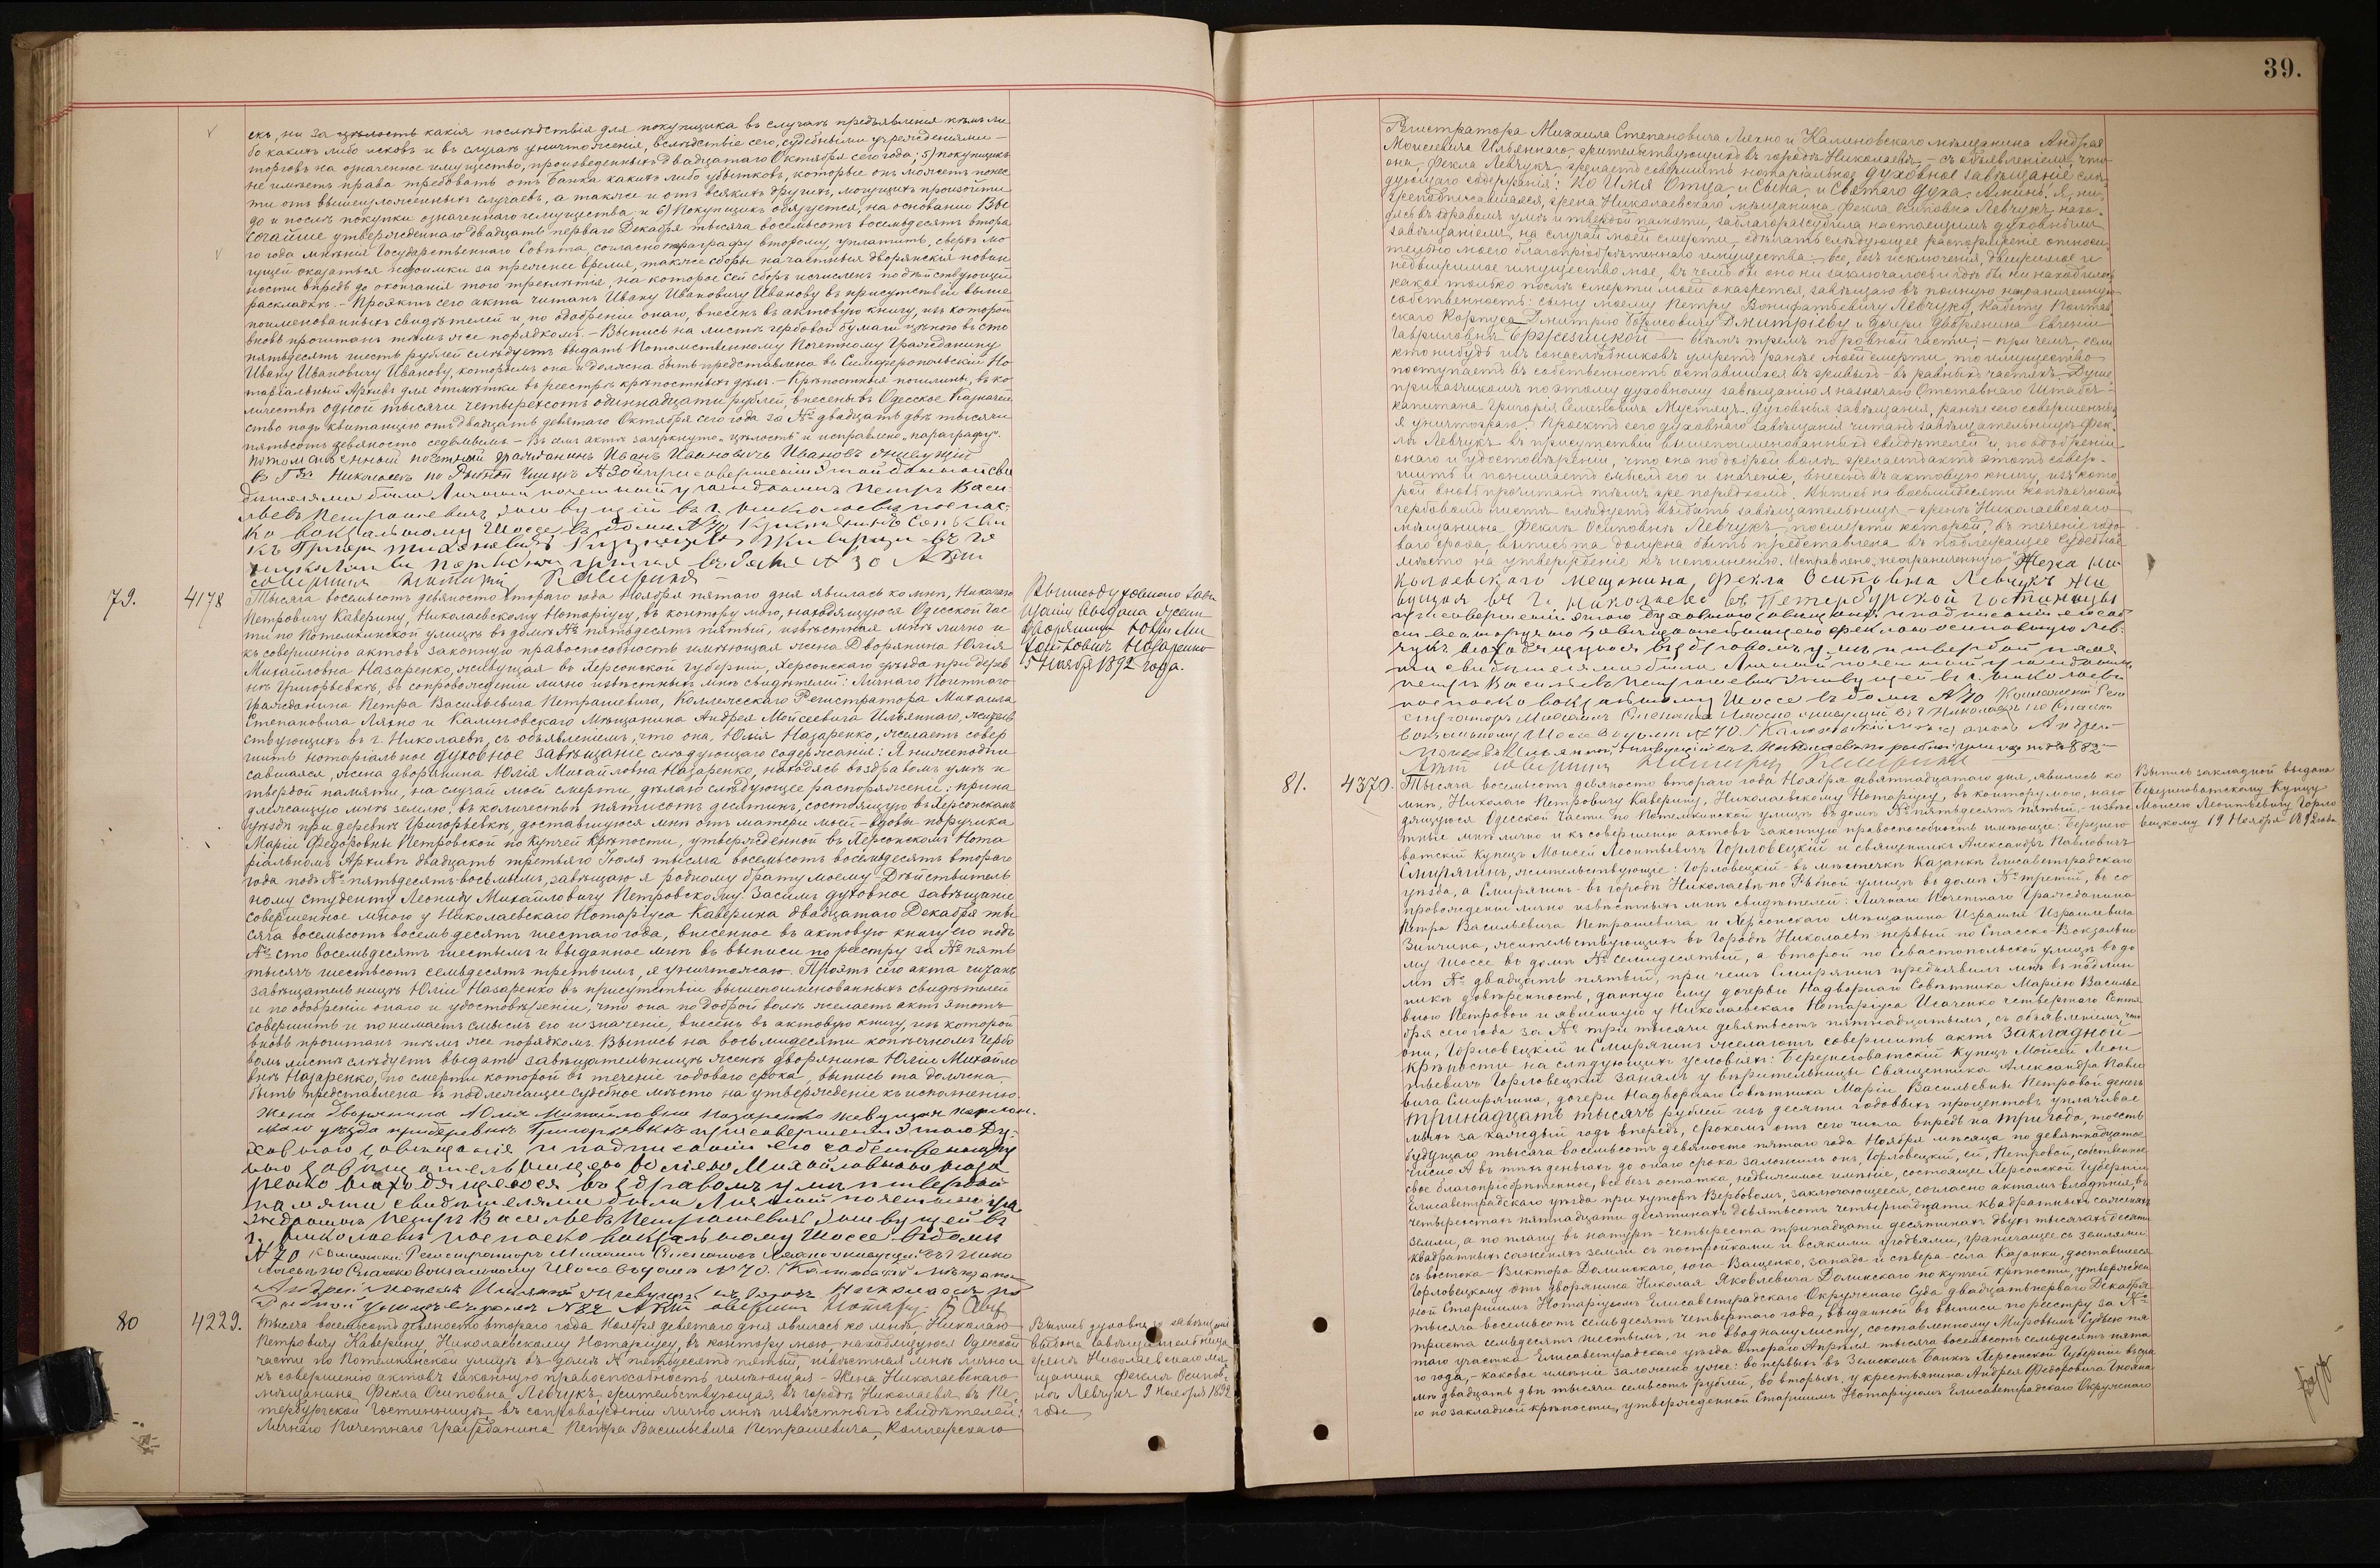 39.
скъ, ни за цѣлость какія послѣдствія для покупщика въ случаѣ предъявленія кѣмъ ли
бо какихъ либо исковъ и въ случаѣ уничтоженія, вслѣдствіе сего, судебными учрежденіями
торговъ на означенное имущество, произведенныхъ двадцатаго Октября сего года; 5) покупщикъ
не имѣетъ права требовать отъ Банка какихъ либо убытковъ, которые онъ можетъ понес
ти отъ вышеизложенныхъ случаевъ, а также и отъ всякихъ другихъ, могущихъ произойти
до и послѣ покупки означеннаго имущества и 6) Покупщикъ обязуется, на основаніи Вы
сочайше утвержденнаго двадцать перваго Декабря тысяча восемьсотъ восемьдесятъ втора
го года мнѣнія Государственнаго Совѣта, согласно параграфу второму, уплатить, сверхъ мо
гущей оказаться недоимки за прежнее время, также сборы на частныя дворянскія повин
ности впредь до окончанія того трехлѣтія, на которое сей сборъ исчисленъ по дѣйствующей
раскладкѣ. – Проэктъ сего акта читанъ Ивану Ивановичу Иванову въ присутствіи выше
поименованныхъ свидѣтелей и, по одобреніи онаго, внесенъ въ актовую книгу, изъ которой
вновь прочитанъ тѣмъ же порядкомъ. – Выпись на листѣ гербовой бумаги цѣною въ сто
пятьдесятъ шесть рублей слѣдуетъ выдать Потомственному Почетному Гражданину
Ивану Ивановичу Иванову, которымъ она и должна быть представлена въ Симферопольскій Но
таріальный Архивъ для отмѣтки въ реестрѣ крѣпостныхъ дѣлъ. – Крѣпостныя пошлины, въ ко
личествѣ одной тысячи четырехсотъ одиннадцати рублей, внесены въ Одесское Казначей
ство подъ квитанцію отъ двадцать девятаго Октября сего года за № двадцать двѣ тысячи
пятьсотъ девяносто седьмымъ. – Въ семъ актѣ зачеркнуто „цѣлость" и исправлено „параграфу".
Потомственный почетный гражданинъ Иванъ Ивановичъ Ивановъ живущій
въ Гдѣ Николаевѣ по Рыбной улицѣ при совершеніи этой свы
дѣтелями были Личный почетный гражданинъ Петръ Васи
льевъ Петрашевичъ живущій въ г. Николаевѣ по Спас
ко вокзальному Шоссе въ домѣ № 70
79.
4178
Тысяча восемьсотъ девяносто втораго года Ноября пятаго дня явилась ко мнѣ, Николаю
Петровичу Каверину, Николаевскому Нотаріусу, въ контору мою, находящуюся Одесской Час
ти по Потемкинской улицѣ въ домѣ № пятьдесятъ пятый, извѣстная мнѣ лично и
къ совершенію актовъ законную правоспособность имѣющая жена Дворянина Юлія
Михайловна Назаренко, живущая въ Херсонской губерніи, Херсонскаго уѣзда при дерев
нѣ Григорьевкѣ, въ сопровожденіи лично извѣстныхъ мнѣ свидѣтелей: Личнаго Почетнаго
Гражданина Петра Васильевича Петрашевича, Коллежскаго Регистратора Михаила
Степановича Ляхно и Калиновскаго Мѣщанина Андрея Мойсеевича Ильяннаго, житель
ствующихъ въ г. Николаевѣ, съ объявленіемъ, что она, Юлія Назаренко, желаетъ совер
шить нотаріальное духовное завѣщаніе слѣдующаго содержанія: Я нижеподпи
савшаяся, жена дворянина Юлія Михайловна Назаренко, находясь въ здравомъ умѣ и
твердой памяти, на случай моей смерти дѣлаю слѣдующее распоряженіе: прина
длежащую мнѣ землю, въ количествѣ пятисотъ десятинъ, состоящую въ Херсонскомъ
уѣздѣ при деревнѣ Григорьевкѣ, доставшуюся мнѣ отъ матери моей – вдовы поручика
Маріи Федоровны Петровской по купчей крѣпости, утвержденной въ Херсонскомъ Нота
ріальномъ Архивѣ двадцать третьяго Іюля тысяча восемьсотъ восемьдесятъ втораго
года подъ № пятьдесятъ восьмымъ, завѣщаю я родному брату моему – Дѣйствитель
ному студенту Леониду Михайловичу Петровскому. Засимъ духовное завѣщаніе
совершенное мною у Николаевскаго Нотаріуса Каверина двадцатаго Декабря ты
сяча восемьсотъ восемьдесятъ шестаго года, внесенное въ актовую книгу его подъ
№ сто восемьдесятъ шестымъ и выданное мнѣ въ выписи по реестру за № пять
тысячъ шестьсотъ семьдесятъ третьимъ, я уничтожаю. Проэктъ сего акта читанъ
завѣщательницѣ Юліи Назаренко въ присутствіи вышепоименованныхъ свидѣтелей
и по одобреніи онаго и удостовѣреніи, что она по доброй волѣ желаетъ актъ этотъ
совершить и понимаетъ смыслъ его и значеніе, внесенъ въ актовую книгу, изъ которой
вновь прочитанъ тѣмъ же порядкомъ. Выпись на восьмидесяти копѣечномъ гербо
вомъ листѣ слѣдуетъ выдать завѣщательницѣ женѣ дворянина Юліи Михайло
внѣ Назаренко, по смерти которой въ теченіе годоваго срока, выпись та должна
быть представлена въ подлежащее судебное мѣсто на утвержденіе къ исполненію.
Жена дворянина Юлія Михайловна Назаренко живущая
уѣзда при деревнѣ Григорьевкѣ при совершеніи этаго Ду
ховнаго завѣщанія и подписаніи его собственнору
чно завѣщательницею Юліею Михайловною Наза
ренко находящеюся въ здравомъ умѣ и твердой
памяти свидѣтелями были Личный почетный гра
жданинъ Петръ Васильевъ Петрашевичъ живущей въ
г. Николаевѣ по Спаско вокзальному Шоссе въ домѣ
№ 70 Коллежскій Регистраторъ Михаилъ Степановъ Ляхно живущій въ г Нико
лаевѣ по Спаско вокзальному Шоссе въ домѣ № 70.
Андрей живущій въ городѣ Николаевѣ по
Рыбной улицѣ въ домѣ № 82 Актъ совершилъ Нотаріусъ
Выпись духовнаго завѣ
щанія выдана женѣ
Дворянина Юліи Ми
хайловнѣ Назаренко
5 Ноября 1892 года.
80
4229.
Тысяча восемьсотъ девяносто втораго года Ноября девятаго дня явилась ко мнѣ, Николаю
Петровичу Каверину, Николаевскому Нотаріусу, въ контору мою, находящуюся Одесской
части по Потемкинской улицѣ въ домѣ № пятьдесятъ пятый, извѣстная мнѣ лично и
къ совершенію актовъ законную правоспособность имѣющая – Жена Николаевскаго
мѣщанина Фекла Осиповна Левчукъ, жительствующая въ городѣ Николаевѣ въ Пе
тербургской Гостинницѣ, въ сопровожденіи лично мнѣ извѣстныхъ свидѣтелей:
Личнаго Почетнаго Гражданина Петра Васильевича Петрашевича, Коллежскаго
Выпись духовнаго завѣщанія
выдана завѣщательницѣ
женѣ Николаевскаго мѣ
щанина Феклѣ Осипов
нѣ Левчукъ 9 Ноября 1892
года
Регистратора Михаила Степановича Ляхно и Калиновскаго мѣщанина Андрея
Моисеевича Ильяннаго, жительствующихъ въ городѣ Николаевѣ, – съ объявленіемъ, что
она, Фекла Левчукъ, желаетъ совершить нотаріальное духовное завѣщаніе слѣ
дующаго содержанія: Во Имя Отца, и Сына, и Святаго Духа. Аминь. Я, ни
жеподписавшаяся, жена Николаевскаго мѣщанина, Фекла Осиповна Левчукъ, нахо
дясь въ здравомъ умѣ и твердой памяти, заблагоразсудила настоящимъ духовнымъ
завѣщаніемъ, на случай моей смерти, сдѣлать слѣдующее распоряженіе относи
тельно моего благопріобрѣтеннаго имущества: все, безъ исключенія, движимое и
недвижимое имущество мое, въ чемъ бы оно ни заключалось и гдѣ бы ни находилось,
какое только послѣ смерти моей окажется, завѣщаю въ полную неограниченную
собственность: сыну моему Петру Вонифатьевичу Левчуку, Кадету Полтав
скаго Корпуса Дмитрію Борисовичу Дмитріеву и дочери Дворянина Евгеніи
Гавриловнѣ Бржезицкой – всѣмъ тремъ по ровной части; – при чемъ, если
кто нибудь изъ сонаслѣдниковъ умретъ ранѣе моей смерти, то имущество
поступаетъ въ собственность оставшихся въ живыхъ – въ равныхъ частяхъ. Душе
приказчикомъ по этому духовному завѣщанію я назначаю Отставнаго Штабсъ
капитана Григорія Семеновича Мустяцъ. Духовныя завѣщанія, ранѣе сего совершенныя
я уничтожаю. Проектъ сего духовнаго завѣщанія читанъ завѣщательницѣ Фек
лѣ Левчукъ въ присутствіи вышепоименованныхъ свидѣтелей и, по одобреніи
онаго и удостовѣреніи, что она по доброй волѣ желаетъ актъ этотъ совер
шить и понимаетъ смыслъ его и значеніе, внесенъ въ актовую книгу, изъ кото
рой вновь прочитанъ тѣмъ же порядкомъ. Выпись на восьмидесяти копѣечномъ
гербовомъ листѣ слѣдуетъ выдать завѣщательницѣ – женѣ Николаевскаго
мѣщанина Феклѣ Осиповнѣ Левчукъ, по смерти которой, въ теченіе годо
ваго срока, выпись та должна быть представлена въ подлежащее судебное
мѣсто на утвержденіе къ исполненію. Исправлено „неограниченную". Жена Ни
колаевского мещанина, Фекла Осиповна Левчукъ жи
вущая въ г. Николаеве въ Петербургской гостиницы
при совершеніи этаго духовнаго завѣщанія и подписаніи его соб
ственноручно завѣщательницею Феклою Осиповною Лев
чукъ находящуюся въ здоровомъ умѣ и твердой памя
ти свидѣтелями были Личный почетный гражданинъ
Петръ Васильевъ Петрашевичъ живущей въ г. Николаевѣ
по Спаско вокзальному Шоссе въ домѣ № 70 Коллежскій Реги
страторъ Михаилъ Степановъ Ляхно живущій въ г Николаевѣ по Спаско
вокзальному Шоссе въ домѣ № 70. Андрей
живущій въ г. Николаевѣ по рыбной улицѣ № 82
Актъ совершилъ Нотаріусъ
81.
4370.
Тысяча восемьсотъ девяносто втораго года Ноября девятнадцатаго дня, явились ко
мнѣ, Николаю Петровичу Каверину, Николаевскому Нотаріусу, въ контору мою, нахо
дящуюся Одесской Части по Потемкинской улицѣ въ домѣ № пятьдесятъ пятый, – извѣс
тные мнѣ лично и къ совершенію актовъ законную правоспособность имѣющіе: Березнего
ватскій Купецъ Моисей Леонтьевичъ Горловецкій и священникъ Александръ Павловичъ
Смирягинъ, жительствующіе: Горловецкій – въ мѣстечкѣ Казанкѣ Елисаветградскаго
уѣзда, а Смирягинъ – въ городѣ Николаевѣ по Рыбной улицѣ въ домѣ № третій, въ со
провожденіи лично извѣстныхъ мнѣ свидѣтелей: Личнаго Почетнаго Гражданина
Петра Васильевича Петрашевича и Херсонскаго Мѣщанина Израиля Израилевича
Зинчина, жительствующихъ въ городѣ Николаевѣ первый по Спасско-Вокзально
му Шоссе въ домѣ № семидесятый, а второй по Севастопольской улицѣ въ до
мѣ № двадцать пятый, при чемъ Смирягинъ предъявилъ мнѣ въ подлин
никѣ довѣренность, данную ему дочерью Надворнаго Совѣтника Маріею Василье
вною Петровой и явленную у Николаевскаго Нотаріуса Исаченко четвертаго Сентя
бря сего года за № три тысячи девятьсотъ пятнадцатымъ, съ объявленіемъ, что
они, Горловецкій и Смирягинъ желаютъ совершить актъ закладной
крѣпости на слѣдующихъ условіяхъ: Березнеговатскій Купецъ Мойсей Леон
тьевичъ Горловецкій занялъ у вѣрительницы Священника Александра Павло
вича Смирягина, дочери Надворнаго Совѣтника Маріи Васильевны Петровой денегъ
тринадцать тысячъ рублей изъ десяти годовыхъ процентовъ уплачивае
мыхъ за каждый годъ впередъ, срокомъ отъ сего числа впредь на три года, то есть
будущаго тысяча восемьсотъ девяносто пятаго года Ноября мѣсяца по девятнадцатое
число А въ тѣхъ деньгахъ до онаго срока заложилъ онъ, Горловецкій, ей, Петровой, собственное
свое благопріобрѣтенное, все безъ остатка, недвижимое имѣніе, состоящее Херсонской Губерніи
Елисаветградскаго уѣзда при хуторѣ Вербовомъ, заключающееся, согласно актамъ владѣнія, въ
четырехстахъ пятнадцати десятинахъ девятьсотъ четырнадцати квадратныхъ саженяхъ
земли, а по плану въ натурѣ – четыреста тринадцати десятинахъ двухъ тысячахъ десяти
квадратныхъ саженяхъ земли съ постройками и всякими угодьями, граничащее съ землями:
съ востока – Виктора Долинскаго, юга – Ващенко, запада и сѣвера – села Казанки, доставшееся
Горловецкому отъ дворянина Николая Яковлевича Долинскаго по купчей крѣпости, утвержден
ной Старшимъ Нотаріусомъ Елисаветградскаго Окружнаго Суда двадцать перваго Декабря
тысяча восемьсотъ семьдесятъ четвертаго года, выданной въ выписи по реестру за №
триста семьдесятъ шестымъ, и по вводному листу, составленному Мировымъ Судьею пя
таго участка Елисаветградскаго уѣзда втораго Апрѣля тысяча восемьсотъ семьдесятъ пята
го года, – каковое имѣніе заложено уже: во первыхъ въ Земскомъ Банкѣ Херсонской Губерніи въ сум
мѣ двадцать двѣ тысячи семьсотъ рублей, во вторыхъ, у крестьянина Андрея Федоровича
ю по закладной крѣпости, утвержденной Старшимъ Нотаріусомъ Елисаветградскаго Окружнаго
Выпись закладной выдана
Березниговатскому Купцу
Моисею Леонтьевичу Горло
вецкому 19 Ноября 1892 года